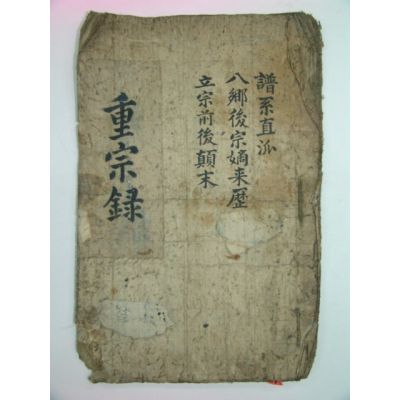 譜系直派
八鄉後宗嫡来歷
立宗前後顛末
重宗録